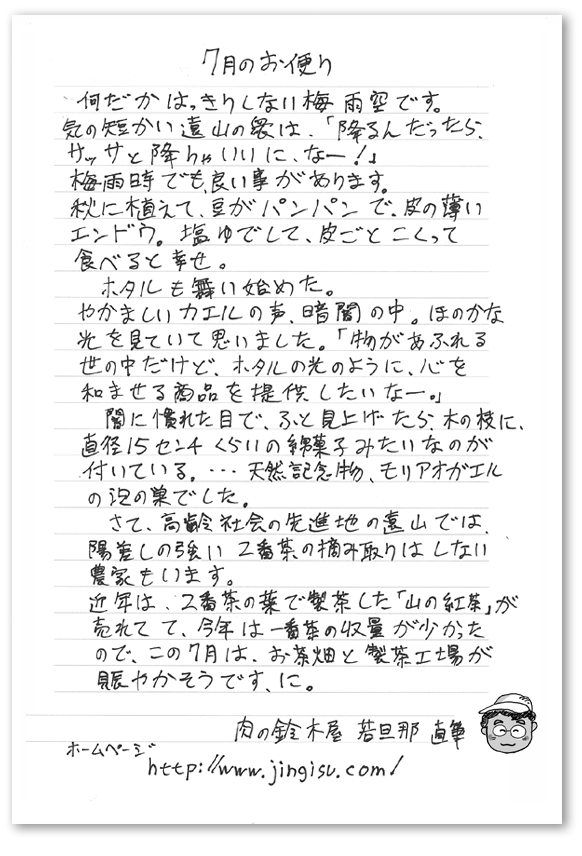 7月のお便り
何だかはっきりしない梅雨空です。
気の短かい遠山の衆は、「降るんだったら、
サッサと降りゃいいに、なー!」
梅雨時でも、良い事があります。
秋に植えて、豆がパンパンで、皮の薄い
エンドウ。塩ゆでして、皮ごとこくって
食べると幸せ。
ホタルも舞い始めた。
やかましいカエルの声、暗闇の中。ほのかな
光を見ていて思いました。「物があふれる
世の中だけど、ホタルの光のように、心を
和ませる商品を提供したいなー。」
闇に慣れた目で、ふと見上げたら、木の枝に、
直径15センチくらいの綿菓子みたいなのが
付いている。・・・天然記念物、モリアオガエル
の泡の巣でした。
さて、高齢社会の先進地の遠山では、
陽差しの強い2番茶の摘み取りはしない
農家もいます。
近年は、2番茶の葉で製茶した「山の紅茶」が
売れてて、今年は一番茶の収量が少かった
ので、この7月は、お茶畑と製茶工場が
賑やかそうです、に。
肉の鈴木屋 若旦那 直筆
ホームページ
http://www.jingisu.com/